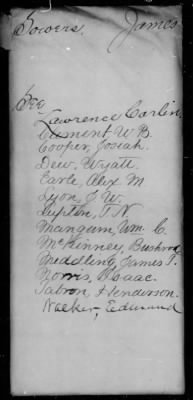 Sowers, James
See
Lawrence Carlin,
Clement W B.
Cooper, Josiah.
Dew, Wyatt.
Earle, Alex M
Lyon, J W.
Lupton, T N
Mangum, Wm. C.
McKinney, Bushrod
Middling, James T.
Norris, Isaac.
Henderson.
Walker, Edmund